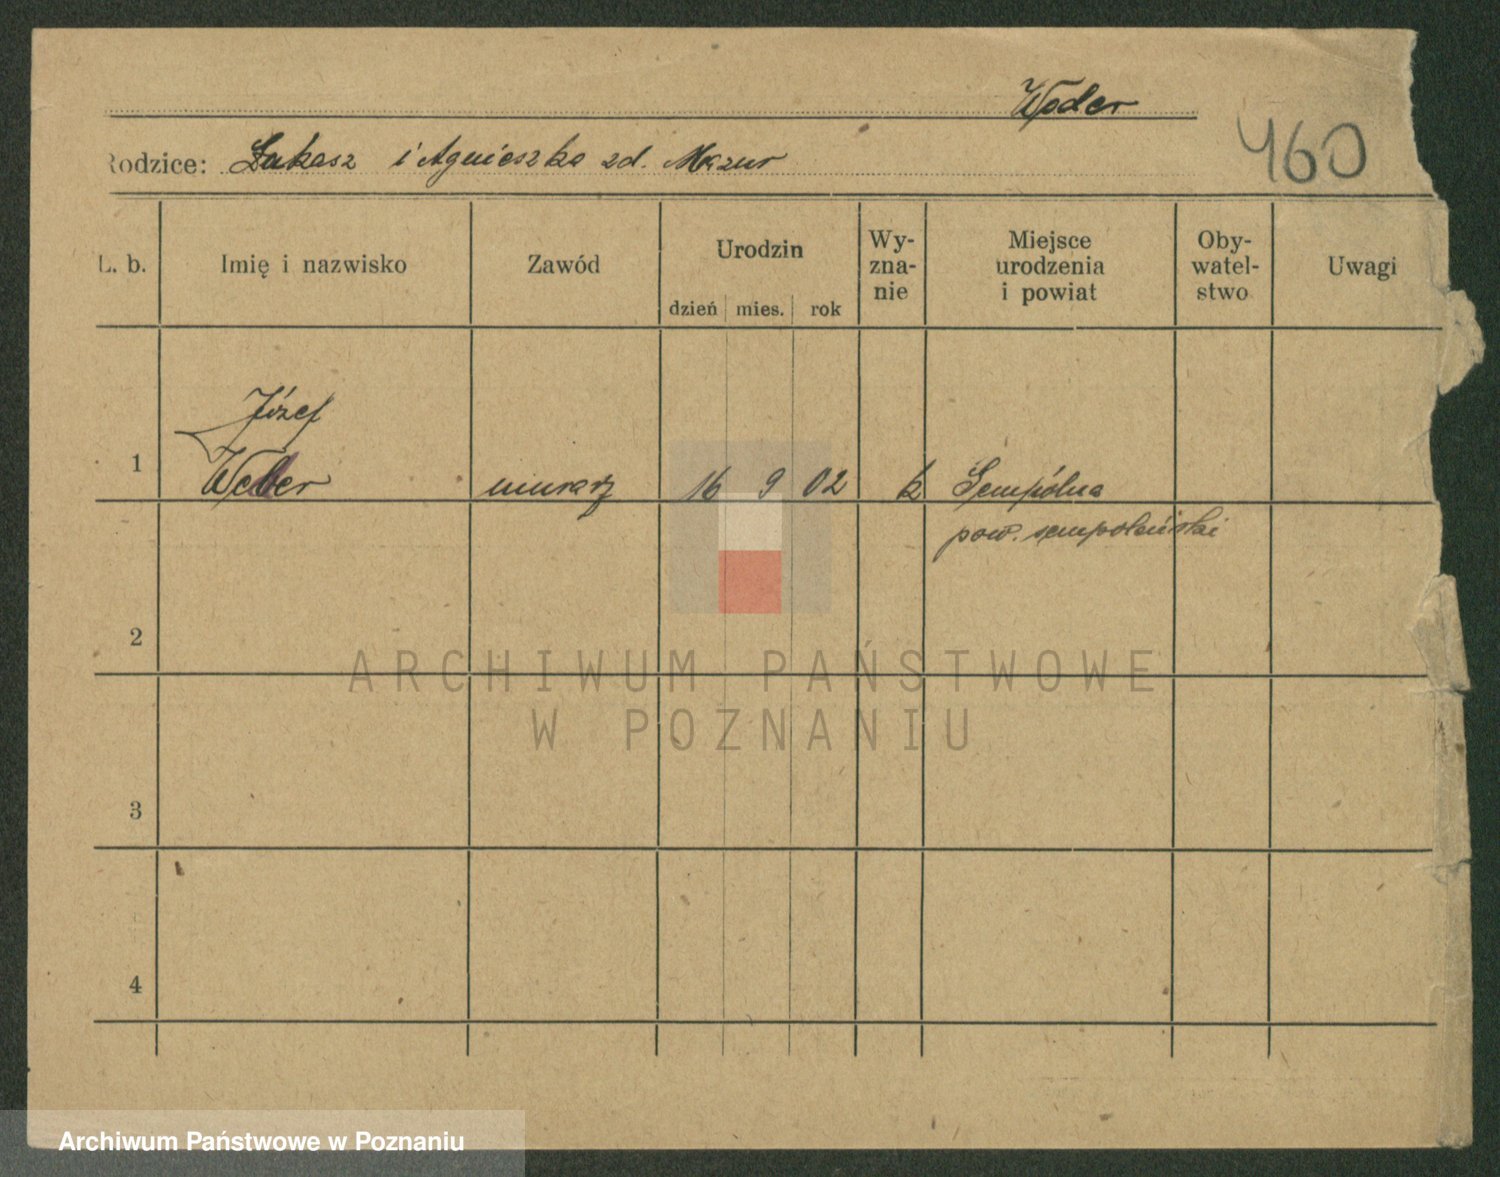 Weder
Rodzice: Łukasz i Agnieszka zd. Mazur
460
L. b. Imię i nazwisko Zawód Urodzin dzień mies. rok Wy-zna-nie Miejsce urodzenia i powiat Oby-watel-stwo Uwagi
Józef
1 Weber murarz 16 9 02 k Sempólna
pow. sempoleński
2
ARCHIWUM PAŃSTWOWE
W POZNANIU
3
4
Archiwum Państwowe w Poznaniu